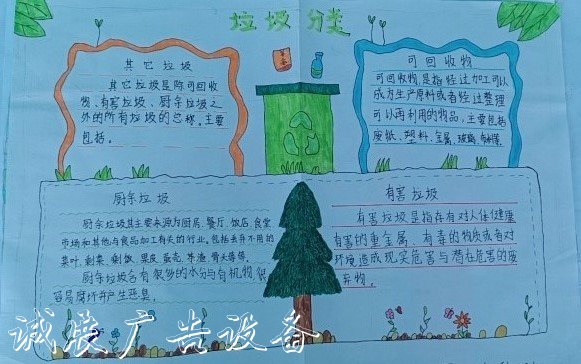 垃圾分类
其它垃圾
其它垃圾是除可回收
物、有害垃圾、厨余垃圾之
外的所有垃圾的总称。主要
包括。
可回收物
可回收物是指经过加工可以
成为生产原料或者经过整理
可以再利用的物品，主要包括
废纸、塑料、金属、玻璃、
厨余垃圾
厨余垃圾其主要来源为厨房、餐厅、饭店、食堂
市场和其他与食品加工有关的行业。包括丢弃不用的
菜叶、剩菜、剩饭、果皮、蛋壳、茶渣、骨头等等、
厨余垃圾含有很多的水分与有机物很
容易腐坏并产生恶臭。
有害垃圾
有害垃圾是指存有对人体健康
有害的重金属、有毒的物质或者对
环境造成现实危害与潜在危害的废
弃物。
诚展广告设备